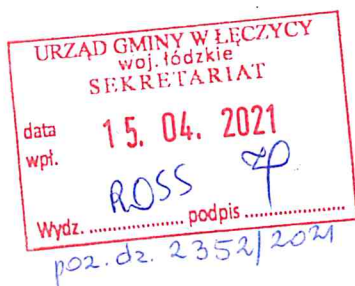 URZĄD GMINY W ŁĘCZYCY
woj. łódzkie
SEKRETARIAT
data 15. 04. 2021
wpł.
ROSS
Wydz. .................. podpis ..................
poz. dz. 2352/2021